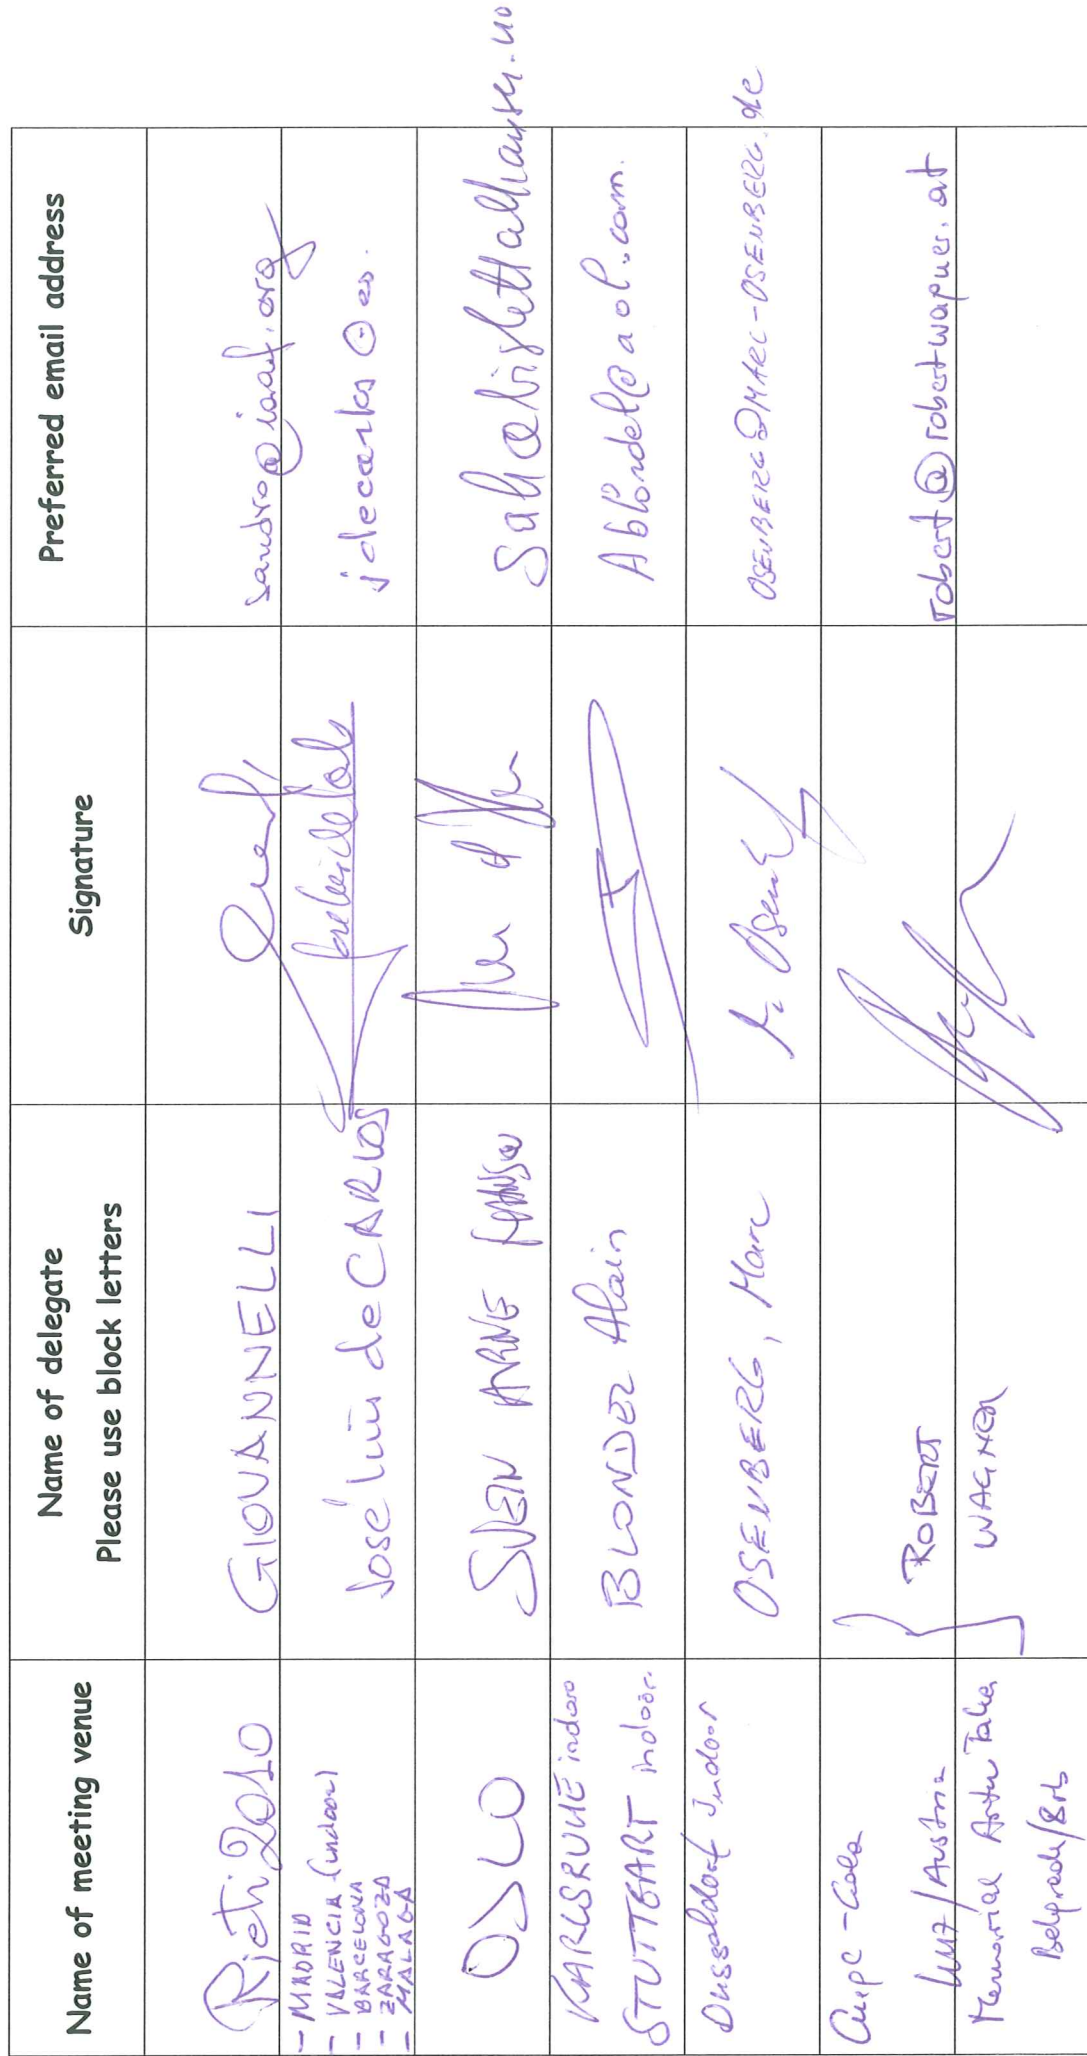 Name of meeting venue
Name of delegate
Please use block letters
Signature
Preferred email address
Rieti 2010
GIOVANNELLI
sandro@iaaf.org
- MADRID
- VALENCIA (indoor)
- BARCELONA
- ZARAGOZA
- MALAGA
José Luis de CARLOS
jdecarlos@
OSLO
SVEIN ARNE HANSEN
KARLSRUHE indoor
STUTTGART indoor.
BLONDEL Alain
Ablondel@aol.com.
Dusseldorf Indoor
OSENBERG, Marc
OSENBERG@MARC-OSENBERG.de
-Gala
Linz/Austria
ROBERT
robert@robertwagner.at
Memorial Artur Takac
Belgrade/Srb
WAGNER